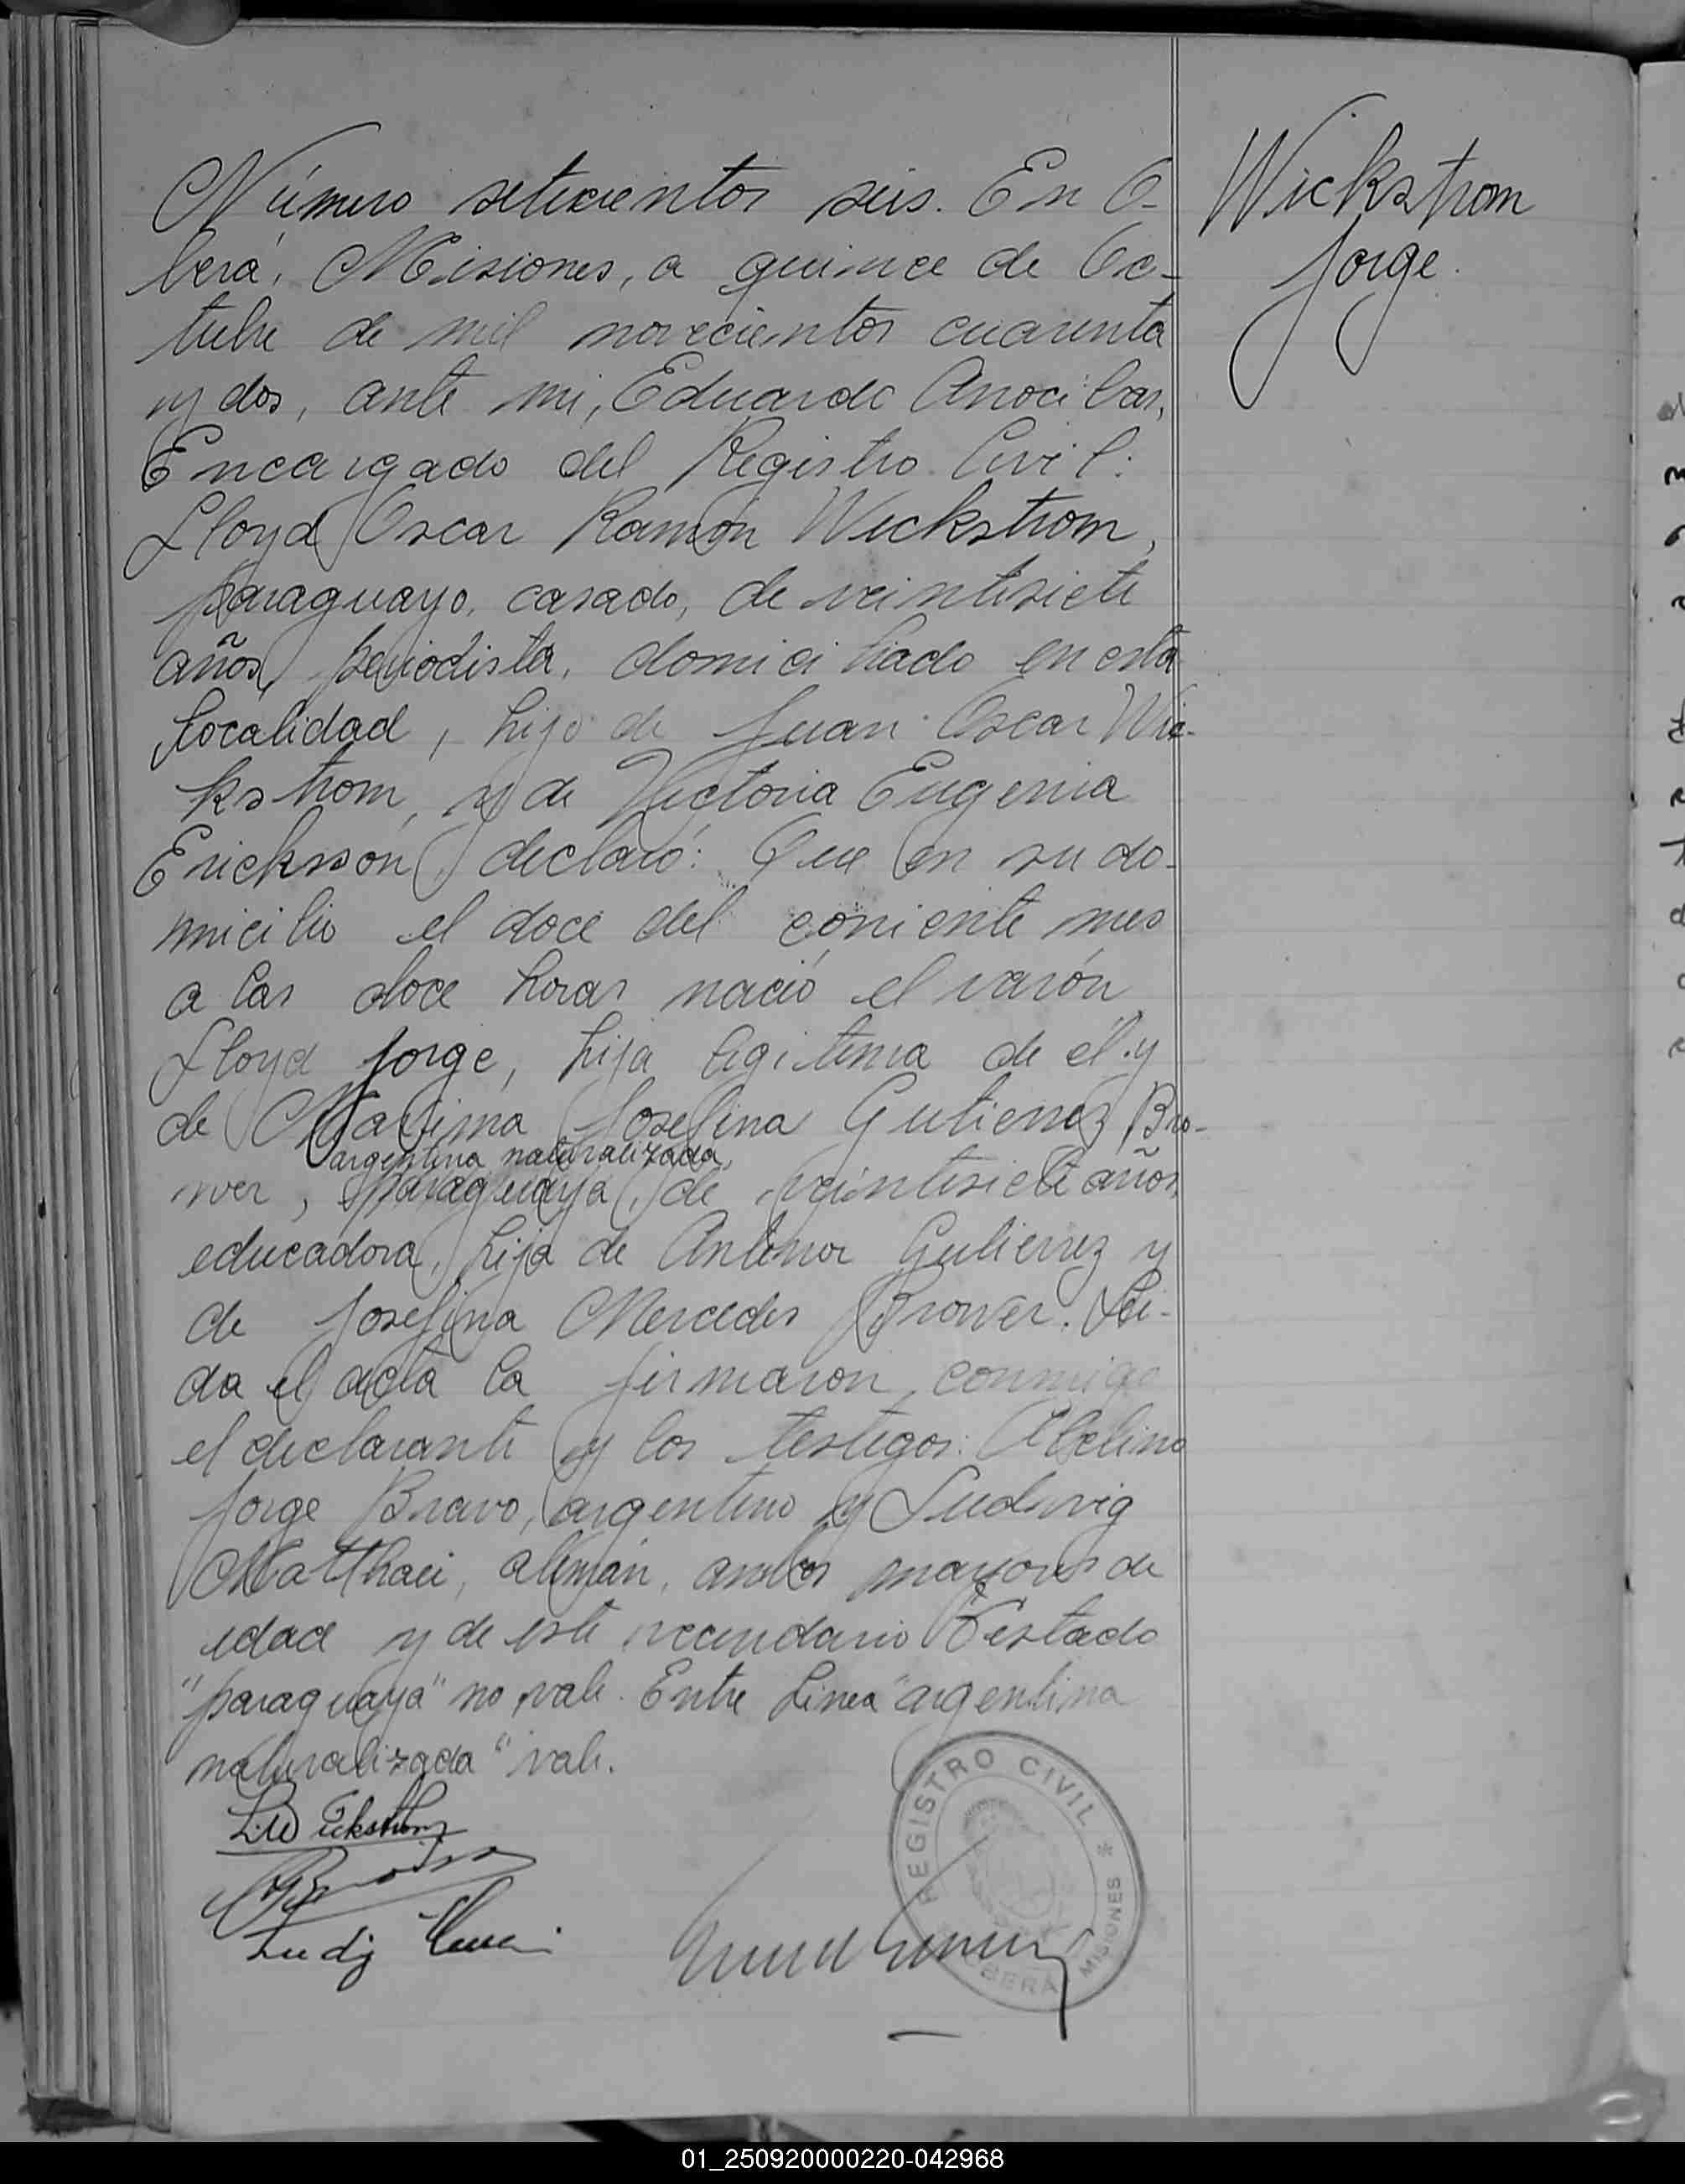 Número setecientos seis. En O-
berá, Misiones, a quince de Oc-
tubre de mil novecientos cuarenta
y dos, ante mi, Eduardo Arocibar,
Encargado del Registro Civil:
Lloyd Oscar Ramón Wickstrom,
paraguayo, casado, de veintisiete
años, periodista, domiciliado en esta
localidad, hijo de Juan Oscar Wic-
kstrom, y de Victoria Eugenia
Erickson, declaró: Que en su do-
micilio el doce del corriente mes
a las doce horas nació el varón
Lloyd Jorge, hija legitima de él y
de Maxima Josefina Gutierrez Bro-
argentina naturalizada,
wer, paraguaya, de veintisiete años,
educadora, hija de Antenor Gutierrez y
de Josefina Mercedes Brower. Lei-
da el acta la firmaron conmigo
el declarante y los testigos: Abelino
Jorge Bravo, argentino y Ludwig
Matthaei, alemán, ambos mayores de
edad y de este vecindario Testado
"paraguaya" no vale. Entre Linea "argentina
naturalizada" vale.
Wickstrom
Jorge.
REGISTRO CIVIL * MISIONES
OBERA
01_250920000220-042968